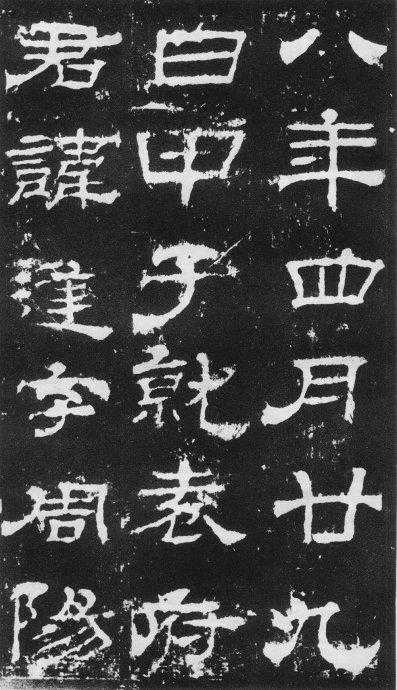 八年四月廿九
日甲子就表府
君諱達字周陽